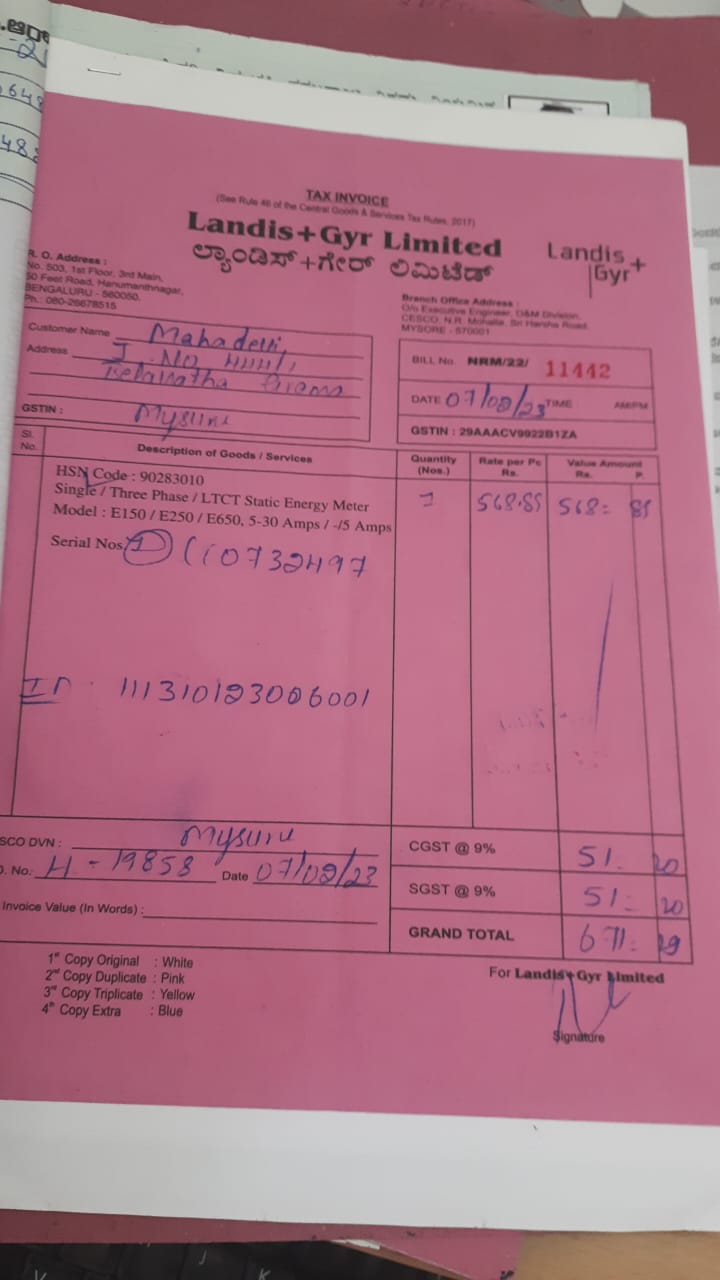 TAX INVOICE
(See Rule 46 of the Central Goods & Services Tax Rules, 2017)
Landis+Gyr Limited
ಲ್ಯಾಂಡಿಸ್+ಗೇರ್ ಲಿಮಿಟೆಡ್
Landis+
Gyr
R. O. Address :
No. 503, 1st Floor, 3rd Main,
50 Feet Road, Hanumanthnagar,
BENGALURU - 560050.
Ph.: 080-26678515
Branch Office Address :
O/o Executive Engineer, O&M Division,
CESCO, N.R. Mohalla, Sri Harsha Road,
MYSORE - 570001
Customer Name
Address
GSTIN :
Mysuru
BILL No. NRM/22/ 11442
DATE 07/09/23 TIME : AM/PM
GSTIN : 29AAACV9922B1ZA
Sl. No. Description of Goods / Services Quantity (Nos.) Rate per Pc Rs. Value Amount Rs. P.
HSN Code : 90283010
Single / Three Phase / LTCT Static Energy Meter 1 568.85 568= 85
Model : E150 / E250 / E650, 5-30 Amps / -/5 Amps
Serial Nos. 10732497
ID. 111310123006001
SCO DVN : Mysuru
. No. H-19858 Date 07/09/23
Invoice Value (In Words) :
CGST @ 9% 51. 20
SGST @ 9% 51= 20
GRAND TOTAL 671=
1st Copy Original : White
2nd Copy Duplicate : Pink
3rd Copy Triplicate : Yellow
4th Copy Extra : Blue
For Landis+Gyr Limited
Signature